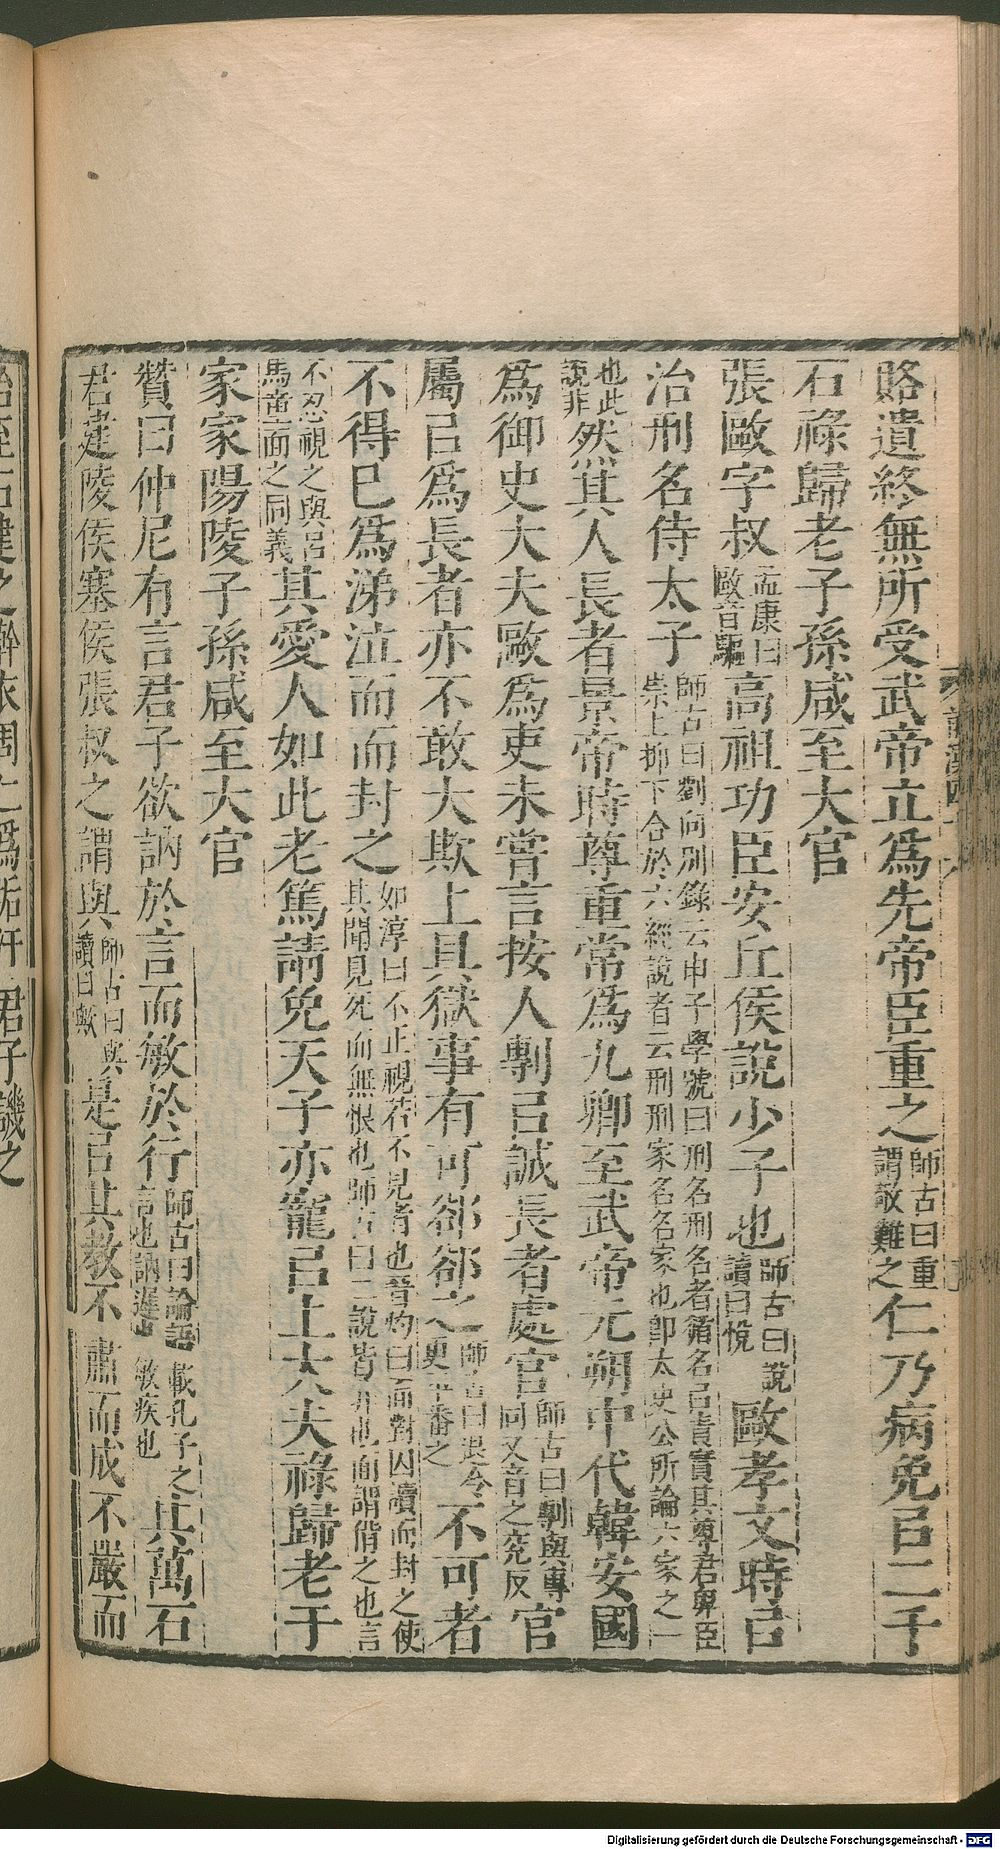 賂遺終無所受武帝立爲先帝臣重之師古曰重謂敬難之仁乃病免㠯二千
石祿歸老子孫咸至大官
張歐字叔孟康曰歐音驅高祖功臣安丘侯說少子也師古曰說讀曰悅歐孝文時㠯
治刑名侍太子師古曰劉向別錄云申子學號曰刑名刑名者循名㠯責實其尊君卑臣崇上抑下合於六經說者云刑刑家名名家也卽太史公所論六家之二
也此說非然其人長者景帝時尊重常爲九卿至武帝元朔中代韓安國
爲御史大夫歐爲吏未嘗言按人剸㠯誠長者處官師古曰剸與專同又音之兖反官
屬㠯爲長者亦不敢大欺上具獄事有可卻卻之師古曰退令更平番之不可者
不得巳爲涕泣而面封之如淳曰不正視若不見者也晉灼曰面對囚讀而封之使其聞見死而無恨也師古曰二說皆非也面謂偝之也言
不忍視之與呂馬童面之同義其愛人如此老篤請免天子亦寵㠯上大夫祿歸老于
家家陽陵子孫咸至大官
贊曰仲尼有言君子欲訥於言而敏於行師古曰論語載孔子之言也訥遲也敏疾也其萬石
君建陵侯塞侯張叔之謂與師古曰與讀曰歟是㠯其教不肅而成不嚴而
君子譏之
Digitalisierung gefördert durch die Deutsche Forschungsgemeinschaft - DFG